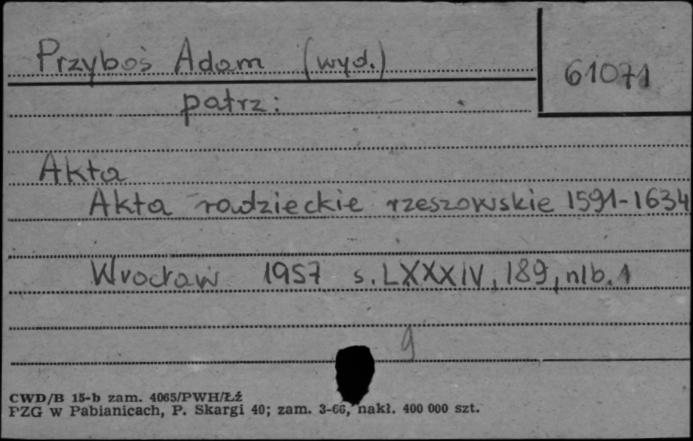 Przyboś Adam (wyd.)
61071
patrz:
Akta
Akta radzieckie rzeszowskie 1591-1634
Wrocław 1957 s. LXXXIV, 189, nlb. 1
9
CWD/B 15-b zam. 4065/PWH/Łź
PZG w Pabianicach, P. Skargi 40; zam. 3-66, nakł. 400 000 szt.